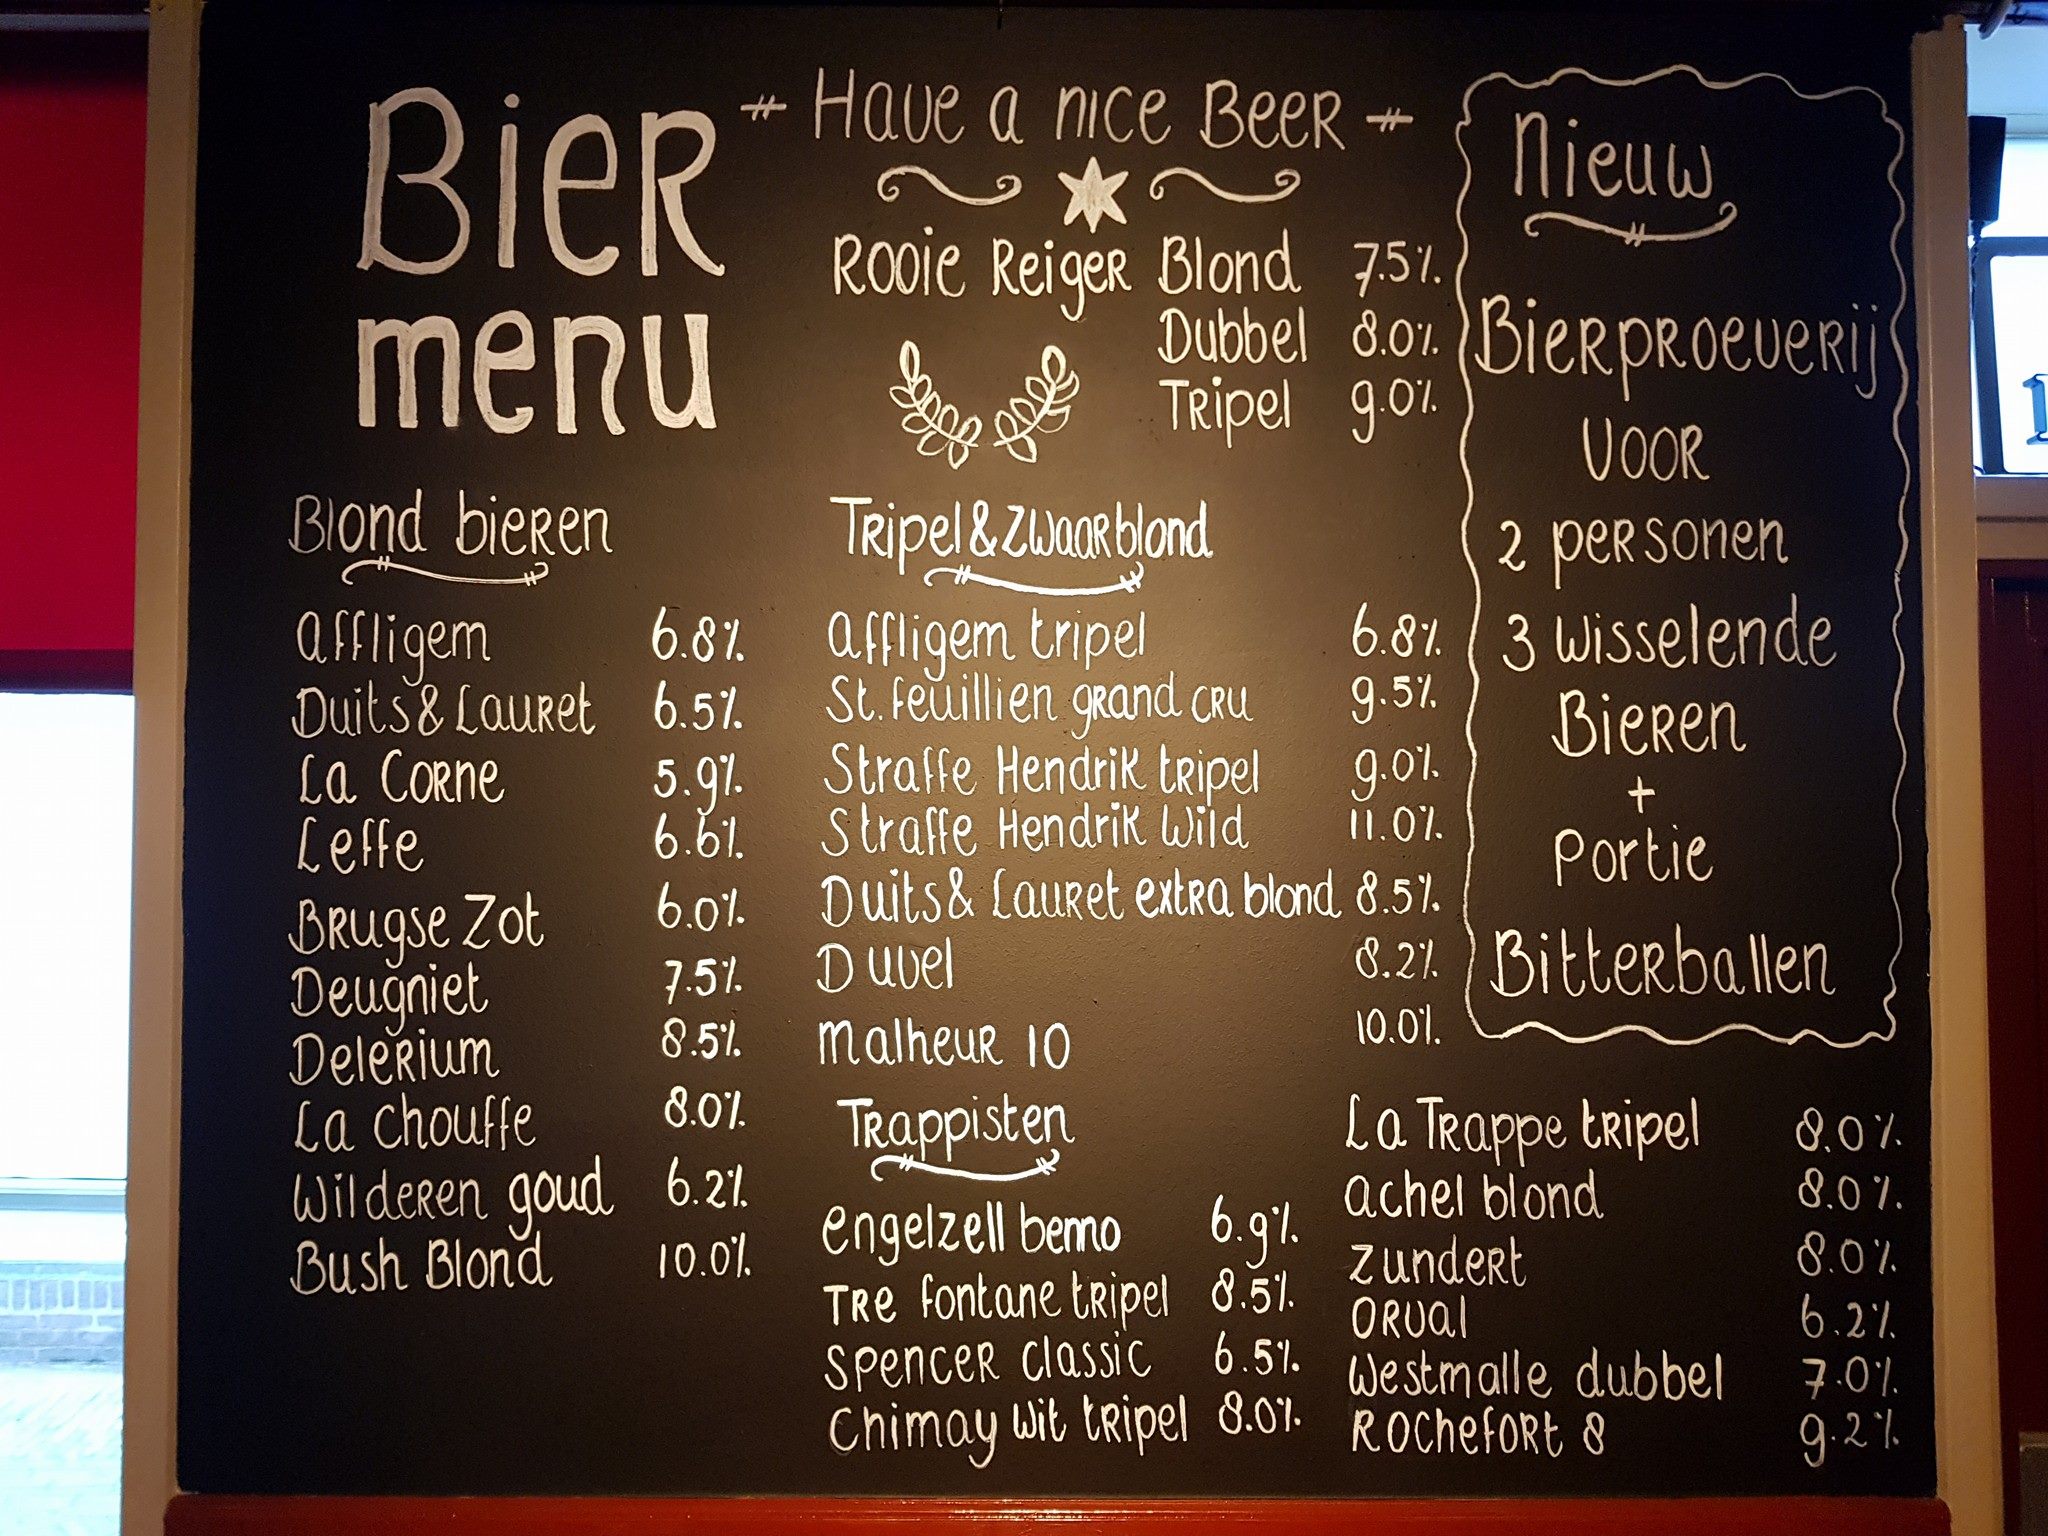 Bier
menu
Have a nice Beer
Rooie Reiger Blond 7.5%
Dubbel 8.0%
Tripel 9.0%
Blond bieren
Affligem 6.8%
Duits & Lauret 6.5%
La Corne 5.9%
Leffe 6.6%
Brugse Zot 6.0%
Deugniet 7.5%
Delerium 8.5%
La Chouffe 8.0%
Wilderen goud 6.2%
Bush Blond 10.0%
Tripel & Zwaarblond
Affligem tripel 6.8%
St. feuillien grand cru 9.5%
Straffe Hendrik tripel 9.0%
Straffe Hendrik Wild 11.0%
Duits & Lauret extra blond 8.5%
Duvel 8.2%
Malheur 10 10.0%
Trappisten
engelzell benno 6.9%
Tre fontane tripel 8.5%
Spencer classic 6.5%
Chimay Wit tripel 8.0%
La Trappe tripel 8.0%
achel blond 8.0%
Zundert 8.0%
Orval 6.2%
Westmalle dubbel 7.0%
Rochefort 8 9.2%
Nieuw
Bierproeverij
voor
2 personen
3 wisselende
Bieren
+
Portie
Bitterballen